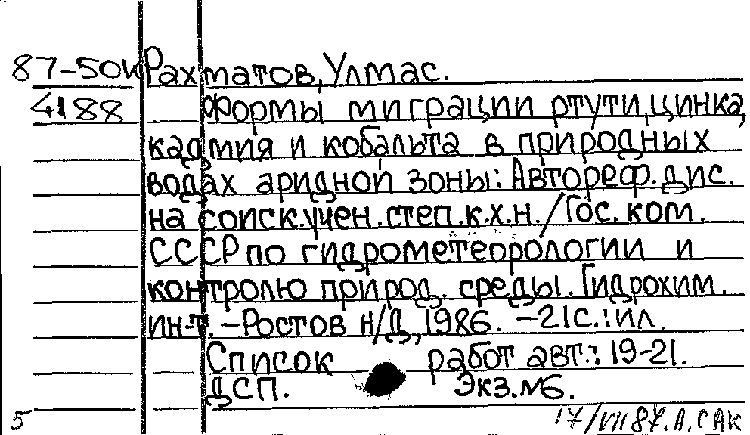 87-50к Рахматов, Улмас.
4188 Формы миграции ртути, цинка,
кадмия и кобальта в природных
водах аридной зоны: Автореф. дис.
на соиск. учен. степ. к.х.н. / Гос. ком.
СССР по гидрометеорологии и
контролю природ. среды. Гидрохим.
ин-т. - Ростов н/Д, 1986. - 21 с.: ил.
Список работ авт.: 19-21.
ДСП. Экз. №6.
5 17/VII 87. А. САК